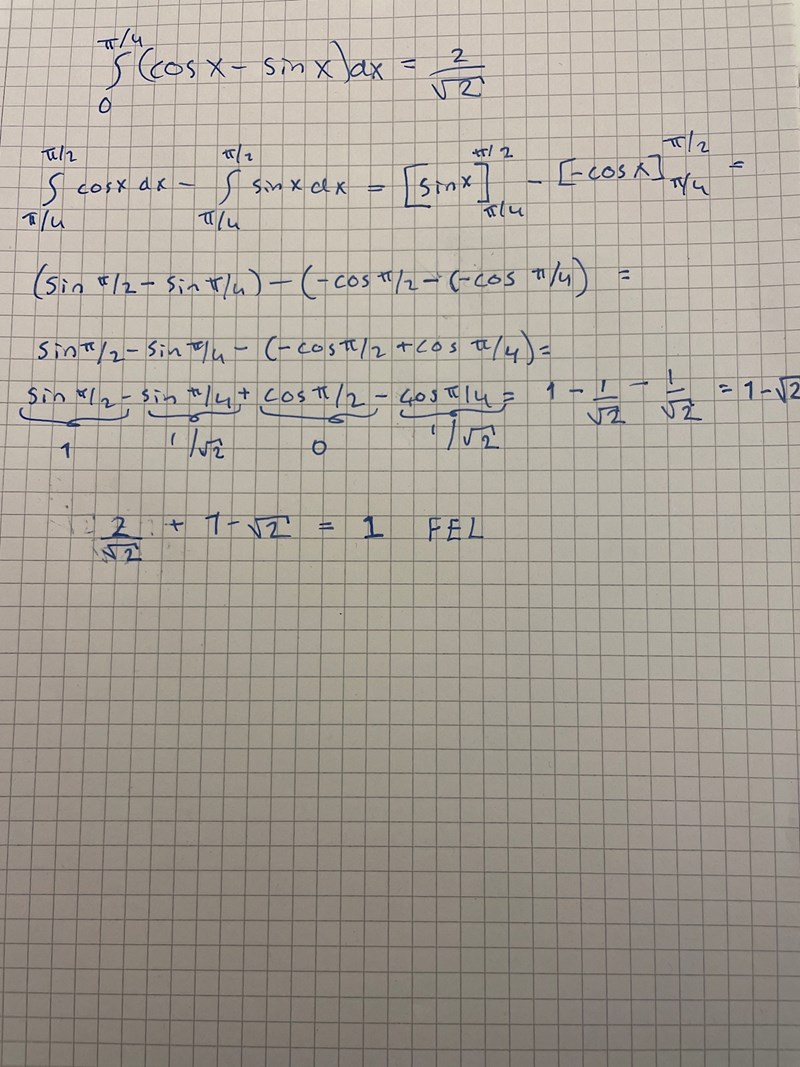 ∫₀^(π/4) (cos x − sin x)dx = 2/√2
∫_(π/4)^(π/2) cosx dx − ∫_(π/4)^(π/2) sinx dx = [sinx]_(π/4)^(π/2) − [−cosx]_(π/4)^(π/2) =
(sin π/2 − sin π/4) − (−cos π/2 − (−cos π/4) =
sin π/2 − sin π/4 − (−cos π/2 + cos π/4) =
sin π/2 − sin π/4 + cos π/2 − cos π/4 = 1 − 1/√2 − 1/√2 = 1−√2
1 1/√2 0 1/√2
2/√2 + 1−√2 = 1 FEL